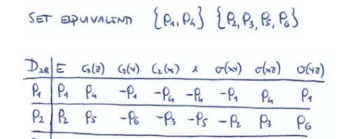 SET EQUIVALEND {P₁, P₄} {P₂, P₃, P₅, P₆}
D₂ₕ E C₂(z) C₂(y) C₂(x) i σ(xy) σ(xz) σ(yz)
P₁ P₁ P₄ -P₁ -P₄ -P₄ -P₁ P₄ P₁
P₂ P₂ P₅ -P₆ -P₃ -P₅ -P₂ P₃ P₆